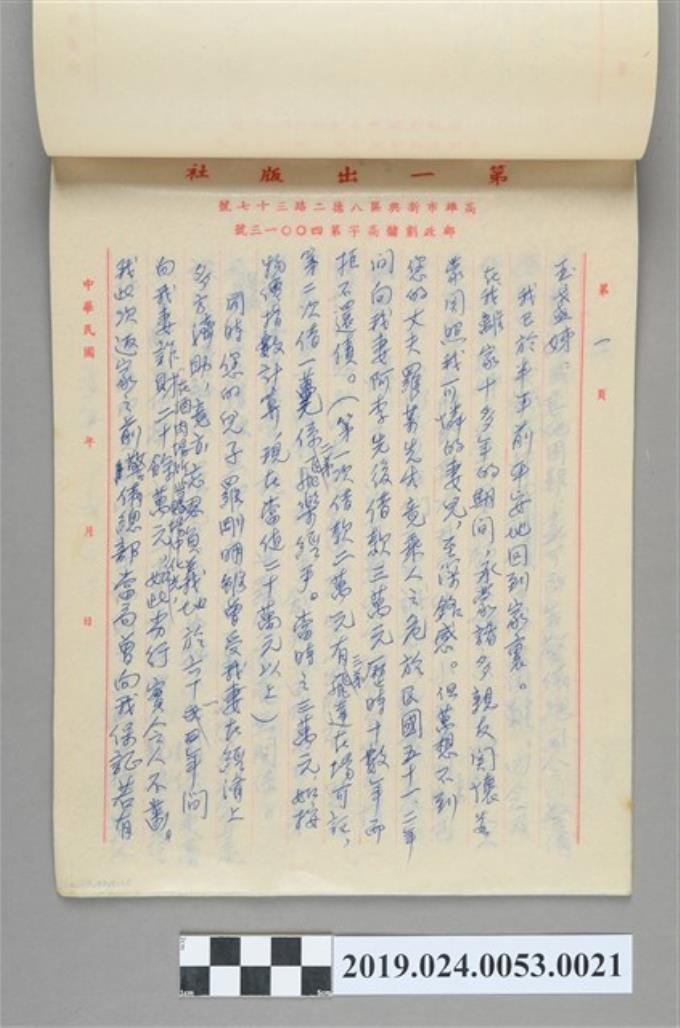 第一出版社
高雄市新興區八德二路三十七號
郵政劃撥儲高字第四〇〇一三號
第一頁
玉盞姊
我已於半年前平安地回到家裏。
在我離家十多年的期間，承蒙諸多親友關懷並
蒙關照我可憐的妻兒，至深銘感。但萬想不到
您的丈夫羅萬先生竟乘人之危於民國五十一二年
間向我妻阿李先後借款三萬元歷時十數年而
拒不還債。（第一次借款二萬元有三弟飛達在場可証，
第二次借一萬元係二弟飛樂經手。當時之三萬元如按
物價指數計算，現在當值二十萬元以上）
同時您的兒子羅剛明雖曾受我妻在經濟上
多方濟助，竟亦忘恩負義地於六十一年間
向我妻詐財二十餘萬元，如此劣行實令人不齒。
我此次返家之前警備總部當局曾向我保証若有
中華民國 年 月 日
2019.024.0053.0021